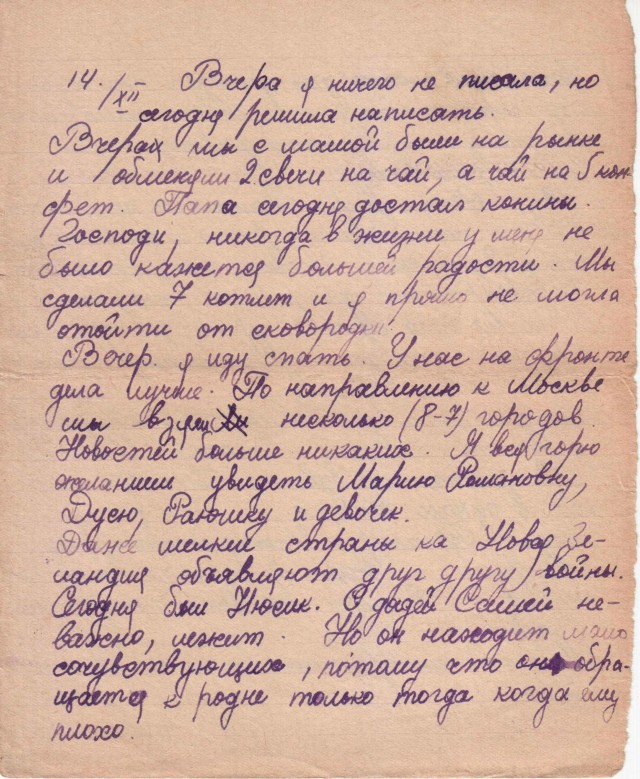 14. /XII Вчера я ничего не писала, но
сегодня решила написать.
Вчера мы с мамой были на рынке
и обменяли 2 свечи на чай, а чай на 5 кон
фет. Папа сегодня достал конины.
Господи, никогда в жизни у меня не
было кажется большей радости. Мы
сделали 7 котлет и я прямо не могла
отойти от сковородки
Вечер. Я иду спать. У нас на фронте
дела лучше. По направлению к Москве
мы взяли несколько (8-7) городов.
Новостей больше никаких. Я вся горю
желанием увидеть Марию Романовну,
Дусю, Раюшку и девочек.
Даже мелкие страны ка Новая Зе-
ландия объявляют друг другу войны.
Сегодня был Нюсик. С дядей Сашей не-
важно, лежит. Но он находит мало
сочувствующих, потому что он обра-
щается к родне только тогда когда ему
плохо.